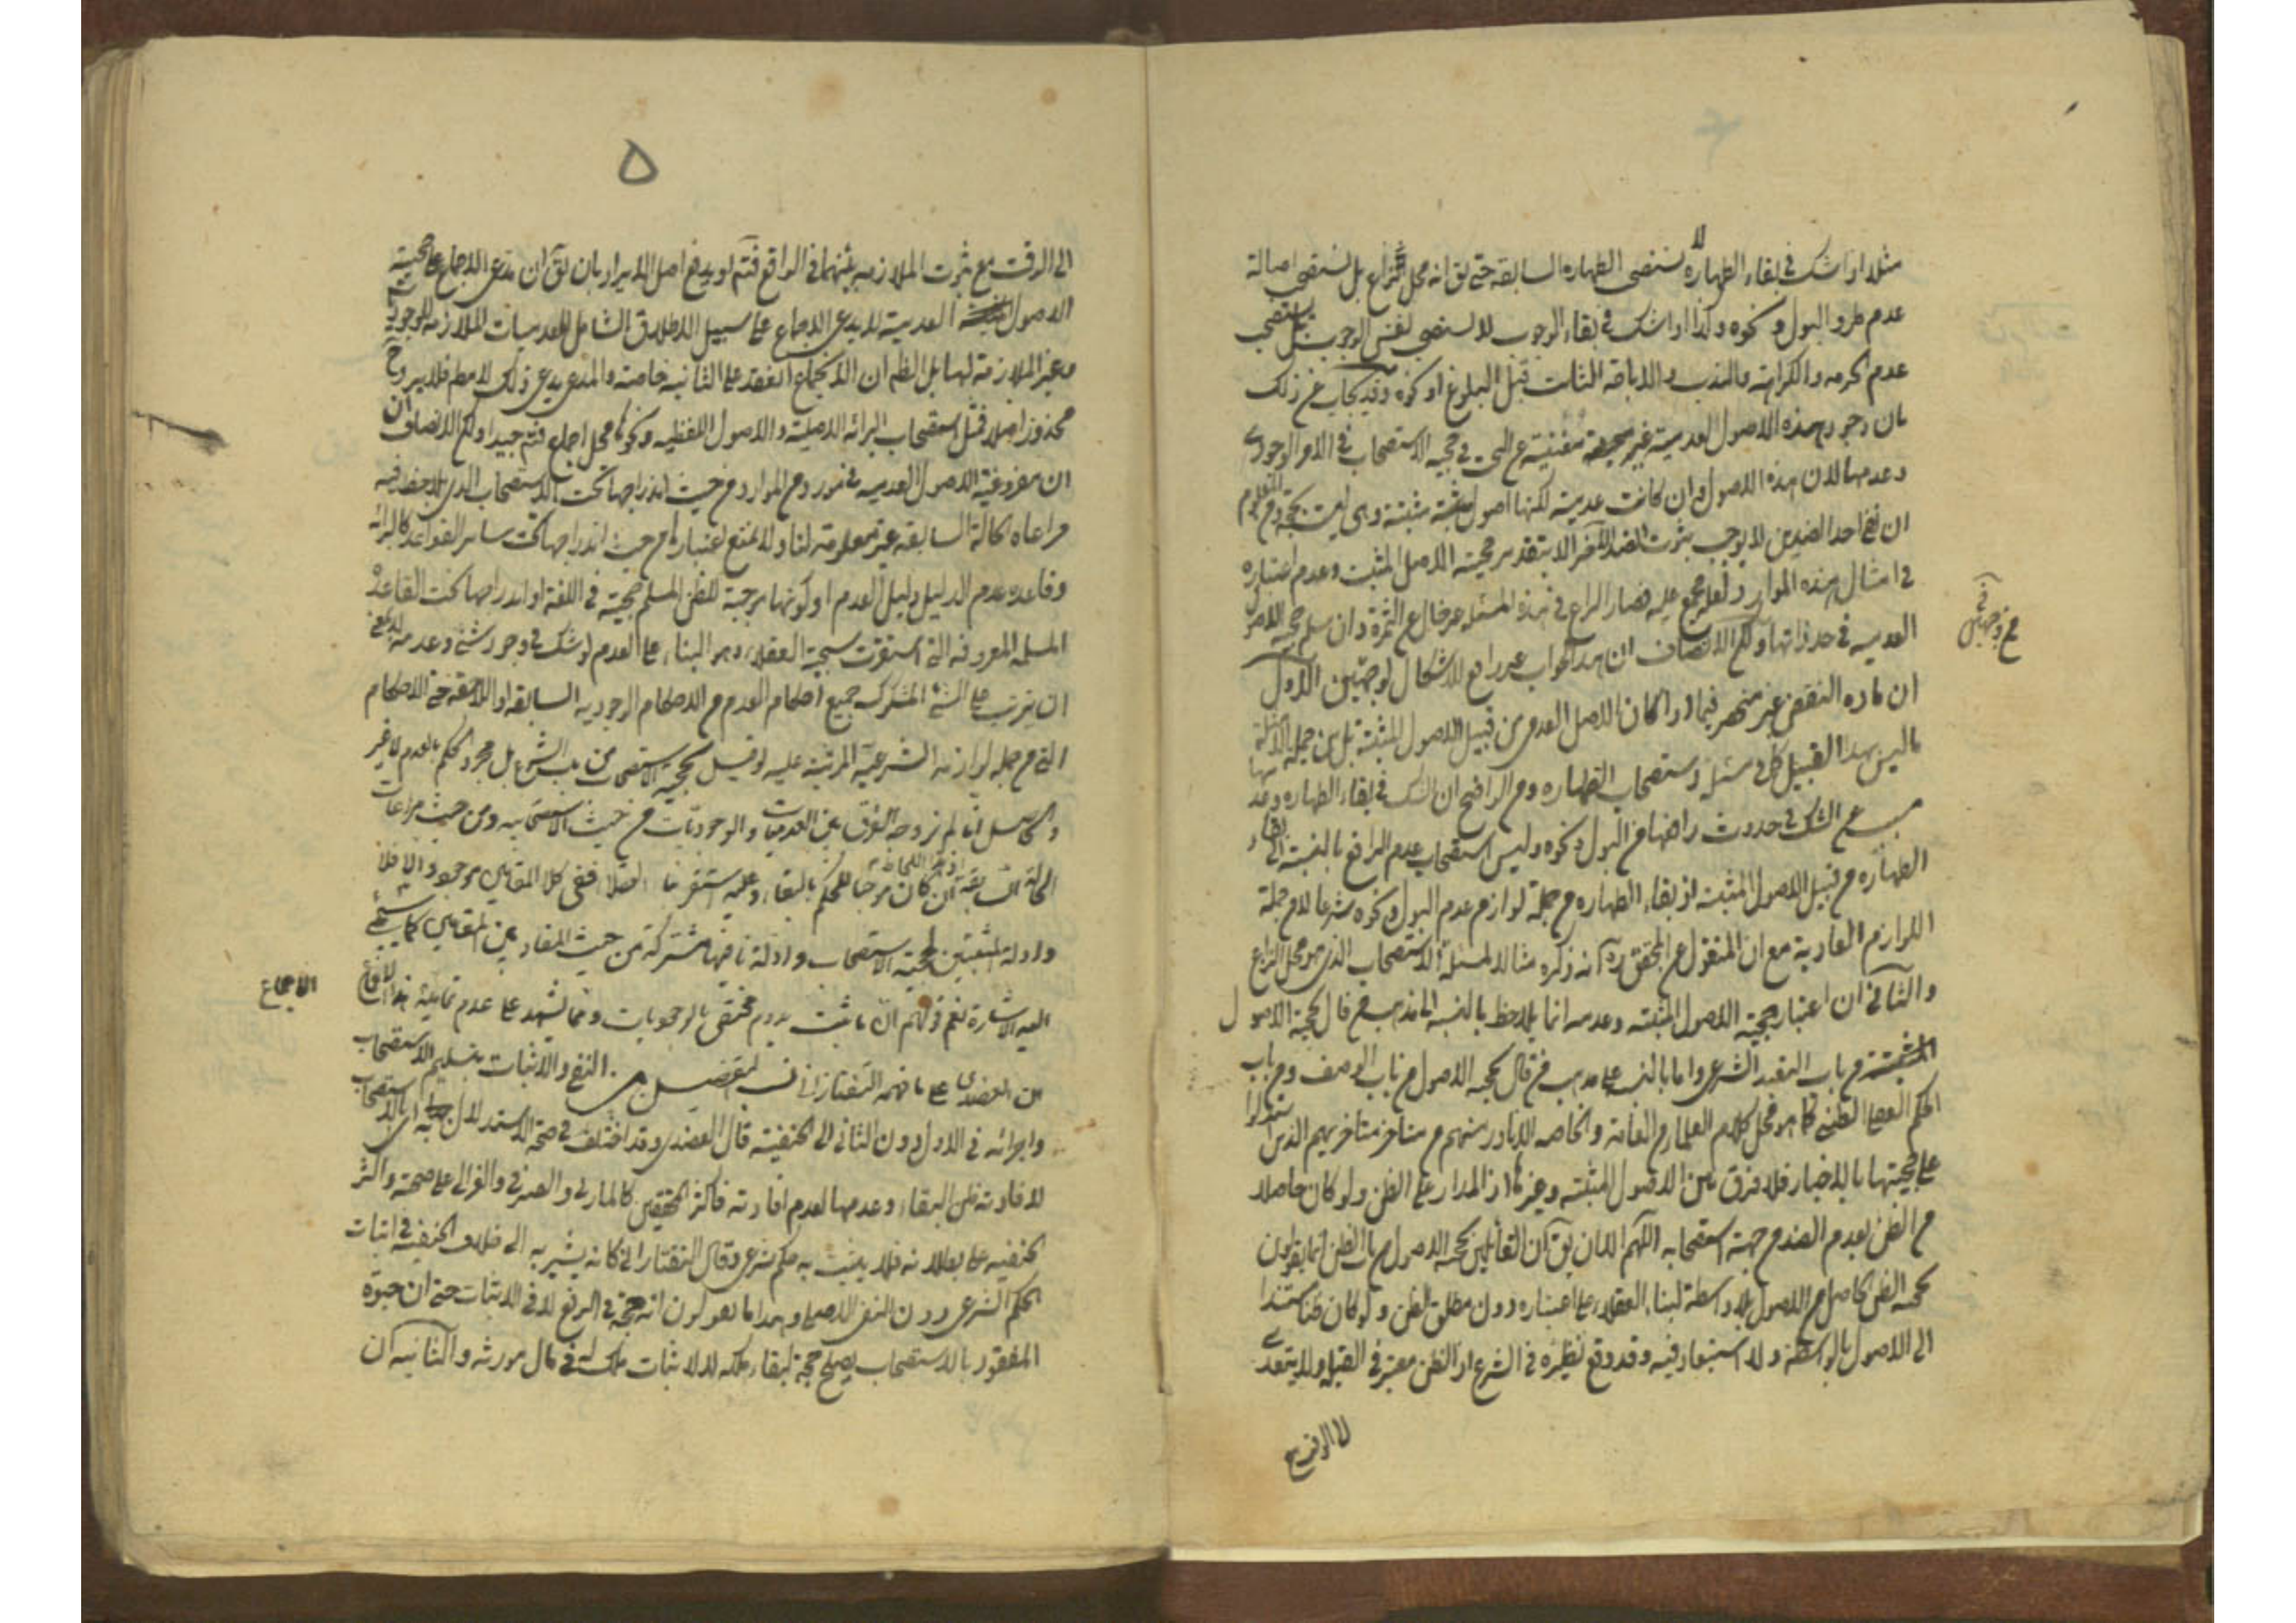 لا
مثلا اذا شك في بقاء الطهارة يستصحب الطهاره السابقة حتى يق انه محل النزاع بل يستصحب اصالة
عدم طرو البول ونحوه وكذا اذا شك في بقاء الوجوب لا يستصحب نفس الوجوب بل يستصحب
عدم الحرمه والكراهة والندب والاباحة الثابت قبل البلوغ او نحوه وقد يجاب عن ذلك
بان وجود هذه الاصول العدمية غير مغنية عن البحث في حجية الاستصحاب في الامر الوجودي
وعدمها لان هذه الاصول وان كانت عدمية لكنها اصول مثبتة وهى ليست بحجة ومن المعلوم
ان نفي احد الضدين لا يوجب ثبوت الضد الآخر الا بتقدير حجية الاصل المثبت وعدم اعتباره
في امثال هذه الموارد ولعله مجمع عليه فصار النزاع في هذه المسئله غير خال عن الثمرة وان سلم حجية الاصول
العدميه في حد ذاتها ولكن الانصاف ان هذا الجواب غير رافع للاشكال لوجهين الاول
ان ماده النقض غير منحصر فيما اذا كان الاصل العدمى من قبيل الاصول المثبتة بل من جملة الامثلة
ما ليس بهذا القبيل كما في مسئلة استصحاب الطهاره ومن الواضح ان الشك في بقاء الطهاره وعدمها
مسبب عن الشك في حدوث رافعها من البول ونحوه وليس استصحاب عدم الرافع بالنسبة الى بقاء
الطهاره من قبيل الاصول المثبت اذ بقاء الطهاره من جملة لوازم عدم البول ونحوه شرعا لا من جملة
اللوازم العادية مع ان المنقول عن المحقق ره انه ذكره مثالا لمسئلة الاستصحاب الذي هو محل النزاع
والثاني ان اعتبار حجية الاصول المثبته وعدمه انما يلاحظ بالنسبة الى مذهب من قال بحجية الاصول
المثبتة من باب التعبد الشرعي واما بالنسبة على مذهب من قال بحجيه الاصول من باب الوصف ومن باب
الحكم العقلي الظني كما هو محل كلام العلماء من العامة والخاصه الا نادر منهم من متاخر متاخريهم الذين استدلوا
على حجيتها بالاخبار فلا فرق بين الاصول المثبته وغيرها اذ المدار على الظن ولو كان حاصلا
من الظن بعدم الضد من جهة استصحابه اللهم الا ان يق ان القائلين بحجية الاصول من باب الظن انما يقولون
بحجيه الظن الحاصل من الاصول بلا واسطة لبناء العقلاء على اعتباره دون مطلق الظن ولو كان ظنا مستندا
الى الاصول بالواسطة ولا استبعاد فيه وقد وقع نظيره في الشرع اذ الظن معتبر في القبلة ولا يتعدى
لا الوقت مع
من وجهين
٥
الى الوقت مع ثبوت الملازمه بينهما في الواقع فتم او يدفع اصل الايراد بان يق ان مدعى الاجماع على حجية
الاصول العدمية لا يدعى الاجماع على سبيل الاطلاق الشامل للعدميات الملازمة للوجودية
وغير الملازمة لها بل الظ ان الاجماع انعقد على الثانية خاصة والمدعى يدعى ذلك لا مطم فلا يرد ح
محذور اصلا فمثل استصحاب البرائه الاصلية والاصول اللفظيه ونحوها محل اجماع فتم جيدا ولكن الانصاف ان
ان مفروغية الاصول العدميه في مورد من الموارد من حيث اندراجها تحت الاستصحاب الذى يلاحظ فيه
مراعاة الحالة السابقه غير معلومة لنا ولا نمنع اعتبارها من حيث اندراجها تحت ساير القواعد كالبرائه
وقاعده عدم الدليل دليل العدم او كونها موجبة للظن المسلم حجيته في اللغة او اندراجها تحت القاعدة
المسلمة المعروفه التي استقرت سجية العقلاء وهو البناء على العدم لو شك في وجود شئ وعدمه
ان يترتب على الشئ المشكوك جميع احكام العدم من الاحكام الوجوديه السابقه او اللاحقة حتى الاحكام
التي من جمله لوازمه الشرعية المرتبة عليه لو قيل بحجية الاستصحاب من باب الشرع بل مجرد الحكم بالعدم لا غير
والحاصل انا لم نر وجه الفرق بين العدميات والوجوديات من حيث الاستصحابيه ومن حيث مراعات
الحالة السابقة ان كان موجبا للحكم بالبقاء وعليه استقر بناء العقلاء ففى كلا المقامين موجود والا فلا
وادلة المثبتين لحجية الاستصحاب وادلة نافيها مشتركة من حيث المفاد بين المقامين كما سيجئ
اليه الاشارة نعم قولهم ان ما ثبت يدوم مختص بالوجوديات ومما يشهد على عدم تمامية هذا
الاجماع
من العضدى على ما فهمه التفتازانى نسب التفصيل بين النفي والاثبات بتسليم الاستصحاب
واجرائه في الاول دون الثاني الى الحنفية قال العضدى وقد اختلف في صحة الاستدلال به اى بالاستصحاب
لافادته ظن البقاء وعدمها لعدم افادته فاكثر المحققين كالمازنى والصيرفي والغزالى على صحته واكثر
الحنفيه على بطلانه فلا يثبت به حكم شرعى وقال التفتازانى كانه يشير به الى خلاف الحنفية في اثبات
الحكم الشرعى دون النفى الاصلى وهذا ما يقولون انه حجة في الرفع لا في الاثبات حتى ان حيوة
المفقود بالاستصحاب يصلح حجة لبقاء ملكه لا لاثبات ملك له في مال مورثه والثانيه ان